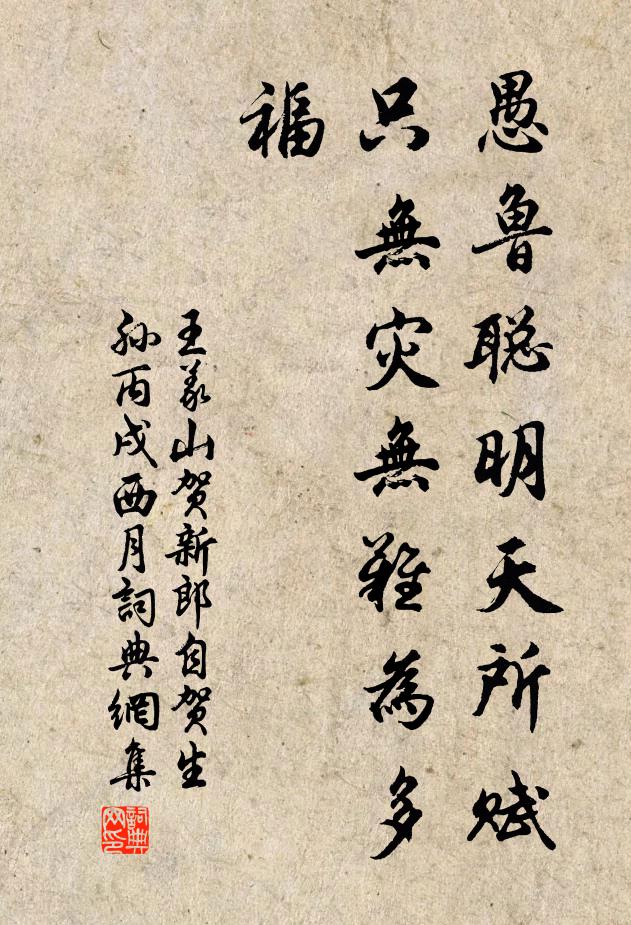 愚鲁聪明天所赋
只無灾無難為多
福
王义山贺新郎自贺生
孙丙戌酉月詞典網集
詞典
网印